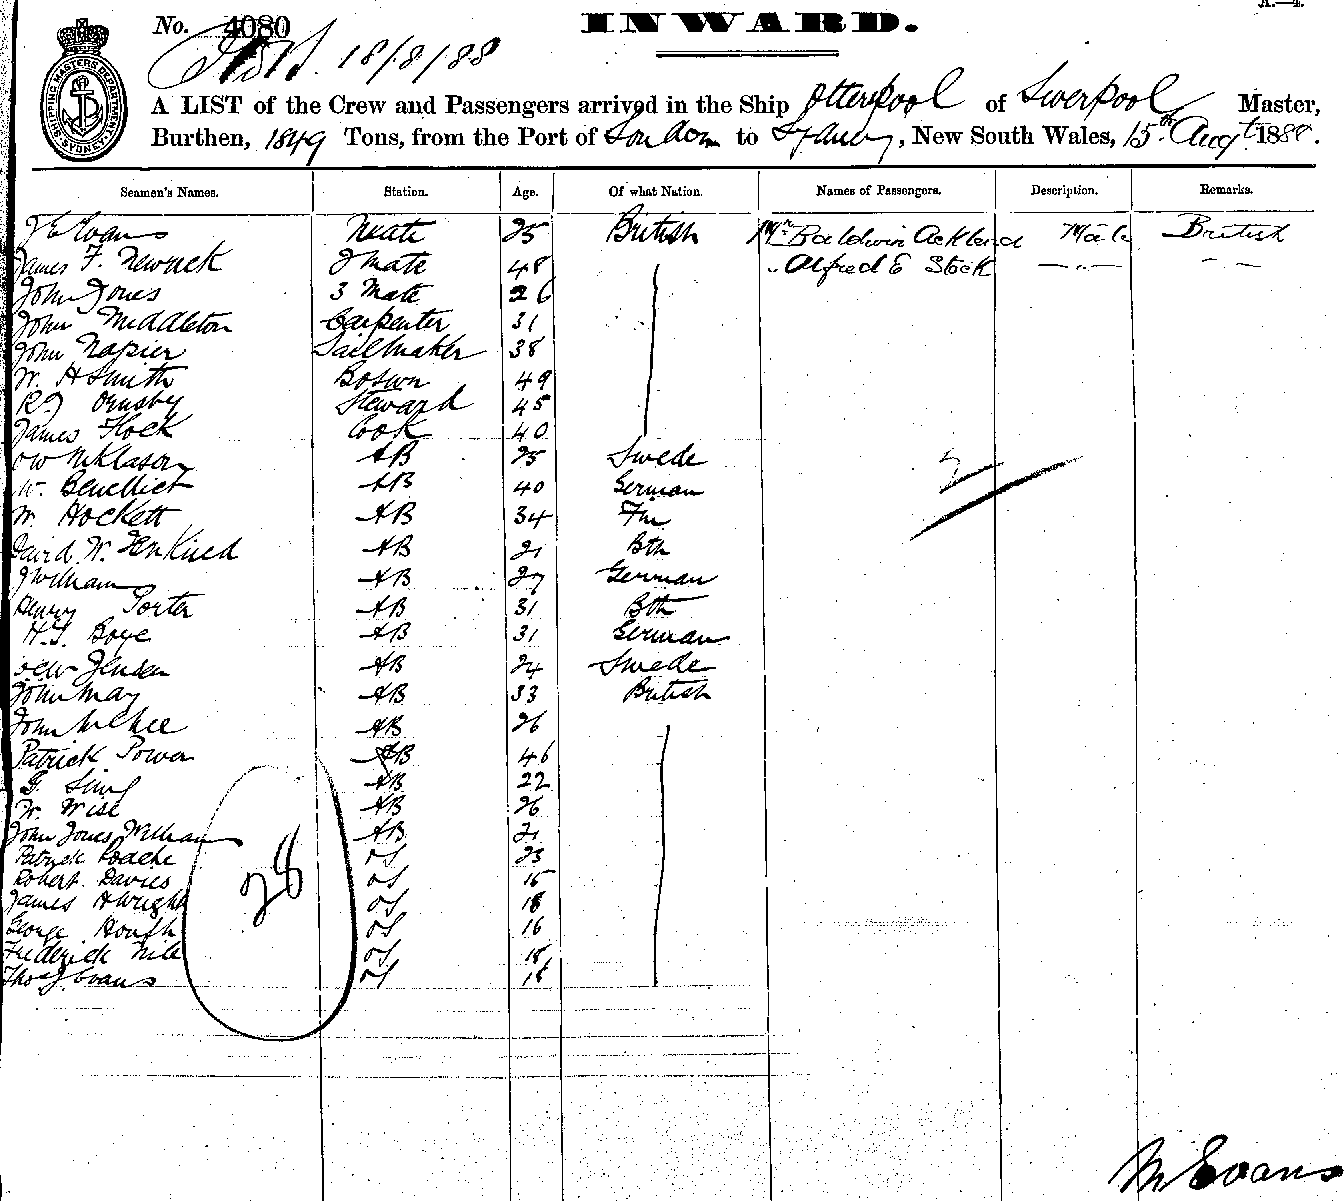 No. 4080
INWARD.
18/8/88
SHIPPING MASTERS DEPARTMENT SYDNEY
A LIST of the Crew and Passengers arrived in the Ship Otterspool of Liverpool Master,
Burthen, 1849 Tons, from the Port of London to Sydney, New South Wales, 15th Augt 1888.
Seamen's Names. Station. Age. Of what Nation. Names of Passengers. Description. Remarks.
J E Evans Mate 25 British Mr Baldwin Ackland Male British
James F. Newack 2 Mate 48 " Alfred E Stock — " — — " —
John Jones 3 Mate 26
John Middleton Carpenter 31
John Napier Sailmaker 38
W. H Smith Bosun 49
R J Ormsby Steward 45
James Flock Cook 40
Niklason AB 25 Swede 2
W. Benedict AB 40 German
W. Hockett AB 34 Fin
David W. Jenkined AB 21 Bth
J William AB 27 German
Henry Porter AB 31 Bth
H. J. Boye AB 31 German
Jensen AB 24 Swede
John May AB 33 British
John McKee AB 26
Patrick Power AB 46
AB 22
W. Wise AB 26
John Jones William AB 21
Patrick Roache OS 23
Robert Davies OS 15
James H Wright OS 18
George Hough OS 16
Frederick OS 18
Thos J Evans OS 18
28
M Evans